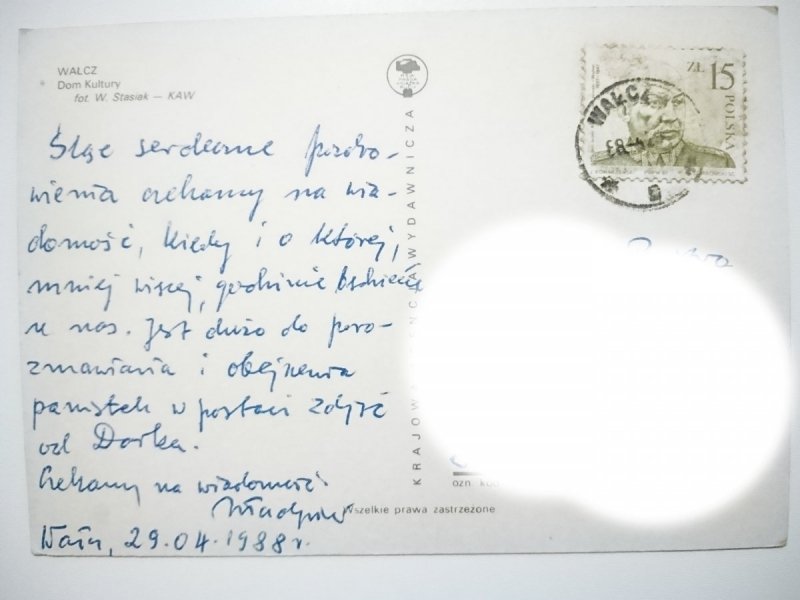 WAŁCZ
Dom Kultury
fot. W. Stasiak — KAW
Ślę serdeczne pozdro-
wienia czekamy na wia-
domość, kiedy i o której,
mniej więcej, godzinie będziecie
u nas. Jest dużo do poro-
zmawiania i obejrzenia
pamiątek w postaci zdjęć
od Darka.
Czekamy na wiadomość
Wałcz, 29.04.1988 r.
KRAJOWA WYDAWNICZA
ZŁ 15
POLSKA
WAŁCZ
ozn. kod
Wszelkie prawa zastrzeżone